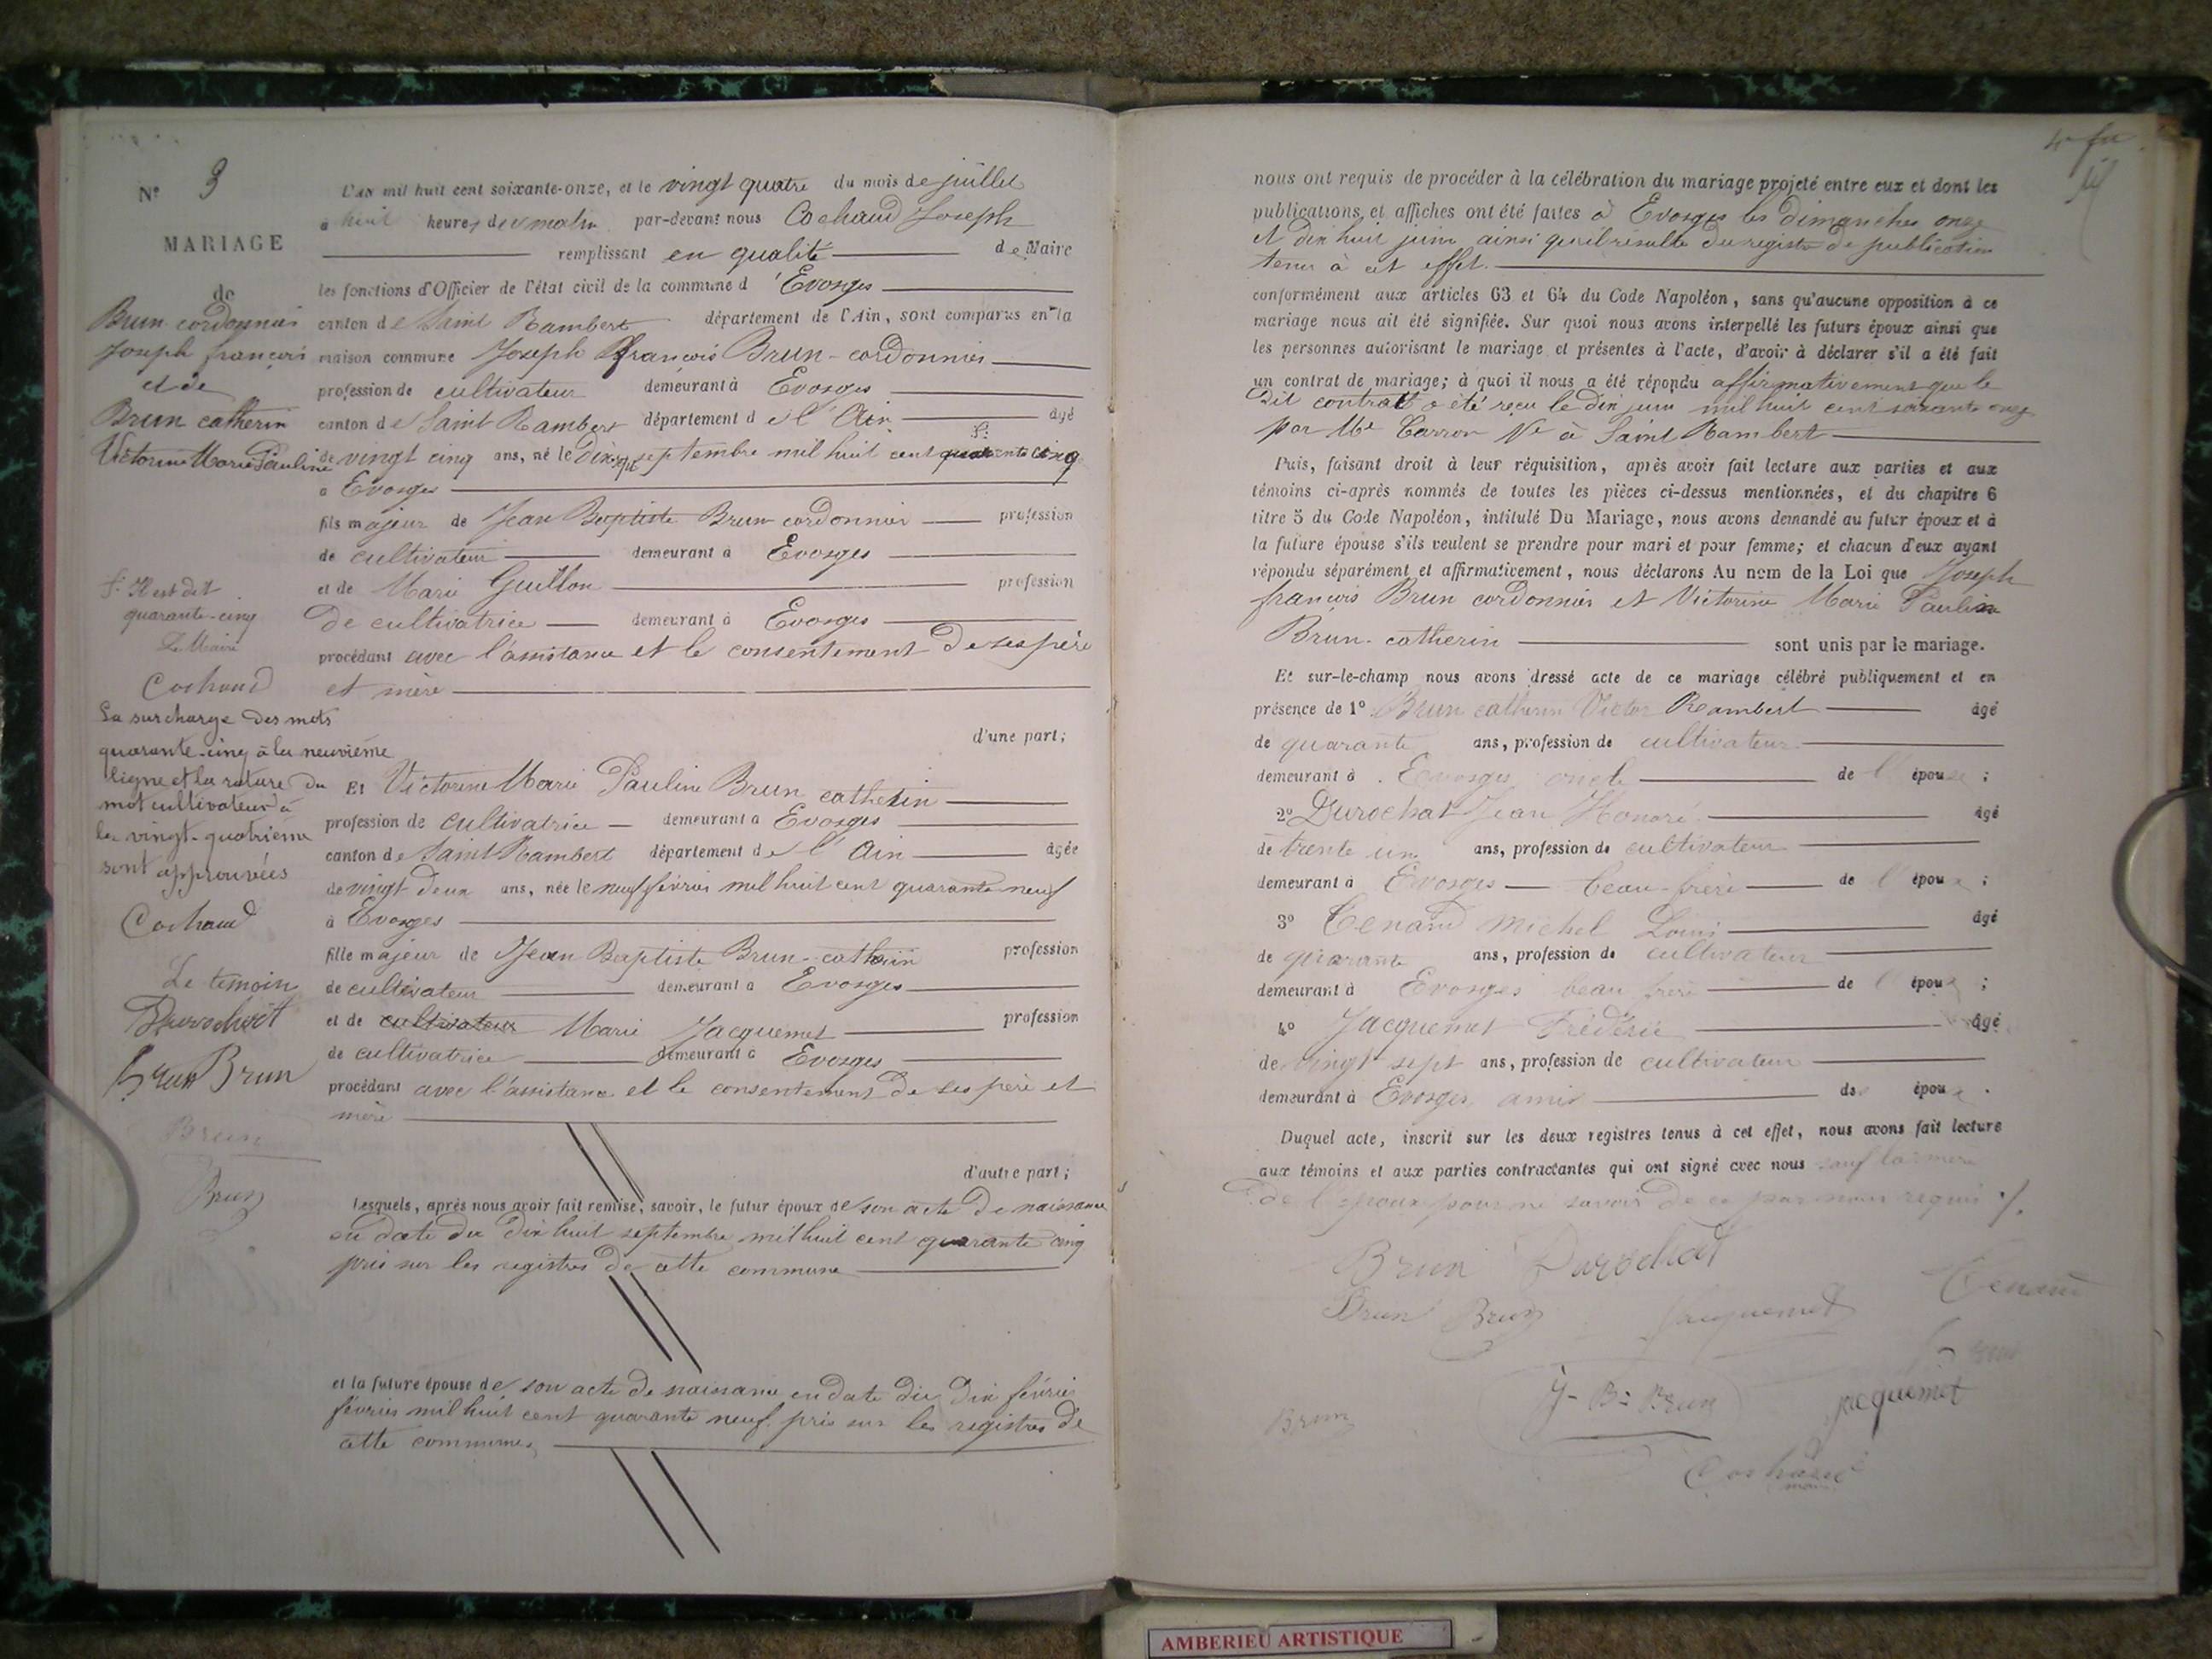 N° 3
MARIAGE
de
Brun cordonnier
Joseph françois
et de
Brun catherin
Victorine Marie Pauline
L'AN mil huit cent soixante-onze, et le vingt quatre du mois de juillet
à huit heures du matin par-devant nous Cochaud Joseph
remplissant en qualité de Maire
les fonctions d'Officier de l'état civil de la commune d'Evosges
canton de Saint Rambert département de l'Ain, sont comparus en la
maison commune Joseph françois Brun-cordonnier
profession de cultivateur demeurant à Evosges
canton de Saint Rambert département de l'Ain âgé
de vingt cinq ans, né le Dix-sept septembre mil huit cent quarante cinq
à Evosges
fils majeur de Jean Baptiste Brun cordonnier profession
de cultivateur demeurant à Evosges
et de Marie Guillon profession
De cultivatrice demeurant à Evosges
procédant avec l'assistance et le consentement De ses père
et mère
d'une part;
Il est dit
quarante-cinq
Le Maire
Cochaud
La surcharge des mots
quarante-cinq à la neuvième
ligne et la rature du
mot cultivateur à
la vingt-quatrième
sont approuvées
Cochaud
Le temoin
Durochat
Brun Brun
Brun
Brun
Et Victorine Marie Pauline Brun catherin
profession de cultivatrice demeurant à Evosges
canton de Saint Rambert département de l'Ain âgée
de vingt deux ans, née le neuf février mil huit cent quarante neuf
à Evosges
fille majeur de Jean Baptiste Brun-catherin profession
de cultivateur demeurant à Evosges
et de cultivateur Marie Jacquemet profession
de cultivatrice demeurant à Evosges
procédant avec l'assistance et le consentement De ses père et
mère
d'autre part;
Lesquels, après nous avoir fait remise, savoir, le futur époux de son acte De naissance
en date du Dix huit septembre mil huit cent quarante cinq
pris sur les registres De cette commune
et la future épouse de son acte de naissance en date du Dix février
février mil huit cent quarante neuf pris sur les registres De
cette commune
nous ont requis de procéder à la célébration du mariage projeté entre eux et dont les
publications et affiches ont été faites à Evosges les dimanches onze
et dix huit juin ainsi qu'il résulte du registre de publication
tenu à cet effet.
conformément aux articles 63 et 64 du Code Napoléon, sans qu'aucune opposition à ce
mariage nous ait été signifiée. Sur quoi nous avons interpellé les futurs époux ainsi que
les personnes autorisant le mariage et présentes à l'acte, d'avoir à déclarer s'il a été fait
un contrat de mariage; à quoi il nous a été répondu affirmativement que le
Dit contrat a été reçu le dix juin mil huit cent soixante onze
par Me Carron Nre à Saint Rambert
Puis, faisant droit à leur réquisition, après avoir fait lecture aux parties et aux
témoins ci-après nommés de toutes les pièces ci-dessus mentionnées, et du chapitre 6
titre 5 du Code Napoléon, intitulé Du Mariage, nous avons demandé au futur époux et à
la future épouse s'ils veulent se prendre pour mari et pour femme; et chacun d'eux ayant
répondu séparément et affirmativement, nous déclarons Au nom de la Loi que Joseph
françois Brun cordonnier et Victorine Marie Pauline
Brun-catherin sont unis par le mariage.
Et sur-le-champ nous avons dressé acte de ce mariage célébré publiquement et en
présence de 1° Brun catherin Victor Rambert âgé
de quarante ans, profession de cultivateur
demeurant à Evosges oncle de l'épouse;
2° Durochat Jean Honoré âgé
de trente un ans, profession de cultivateur
demeurant à Evosges beau-frère de l'épou;
3° Tenand Michel Louis âgé
de quarante ans, profession de cultivateur
demeurant à Evosges beau frère de l'épou;
4° Jacquemet Frédéric âgé
de vingt sept ans, profession de cultivateur
demeurant à Evosges amis des époux.
Duquel acte, inscrit sur les deux registres tenus à cet effet, nous avons fait lecture
aux témoins et aux parties contractantes qui ont signé avec nous sauf la mère
de l'époux pour ne savoir de ce par nous requis
Brun Durochat
Tenand
Brun Brun Jacquemet
J-B: Brun jacquemet
Brun
Cochaud
maire
AMBERIEU ARTISTIQUE